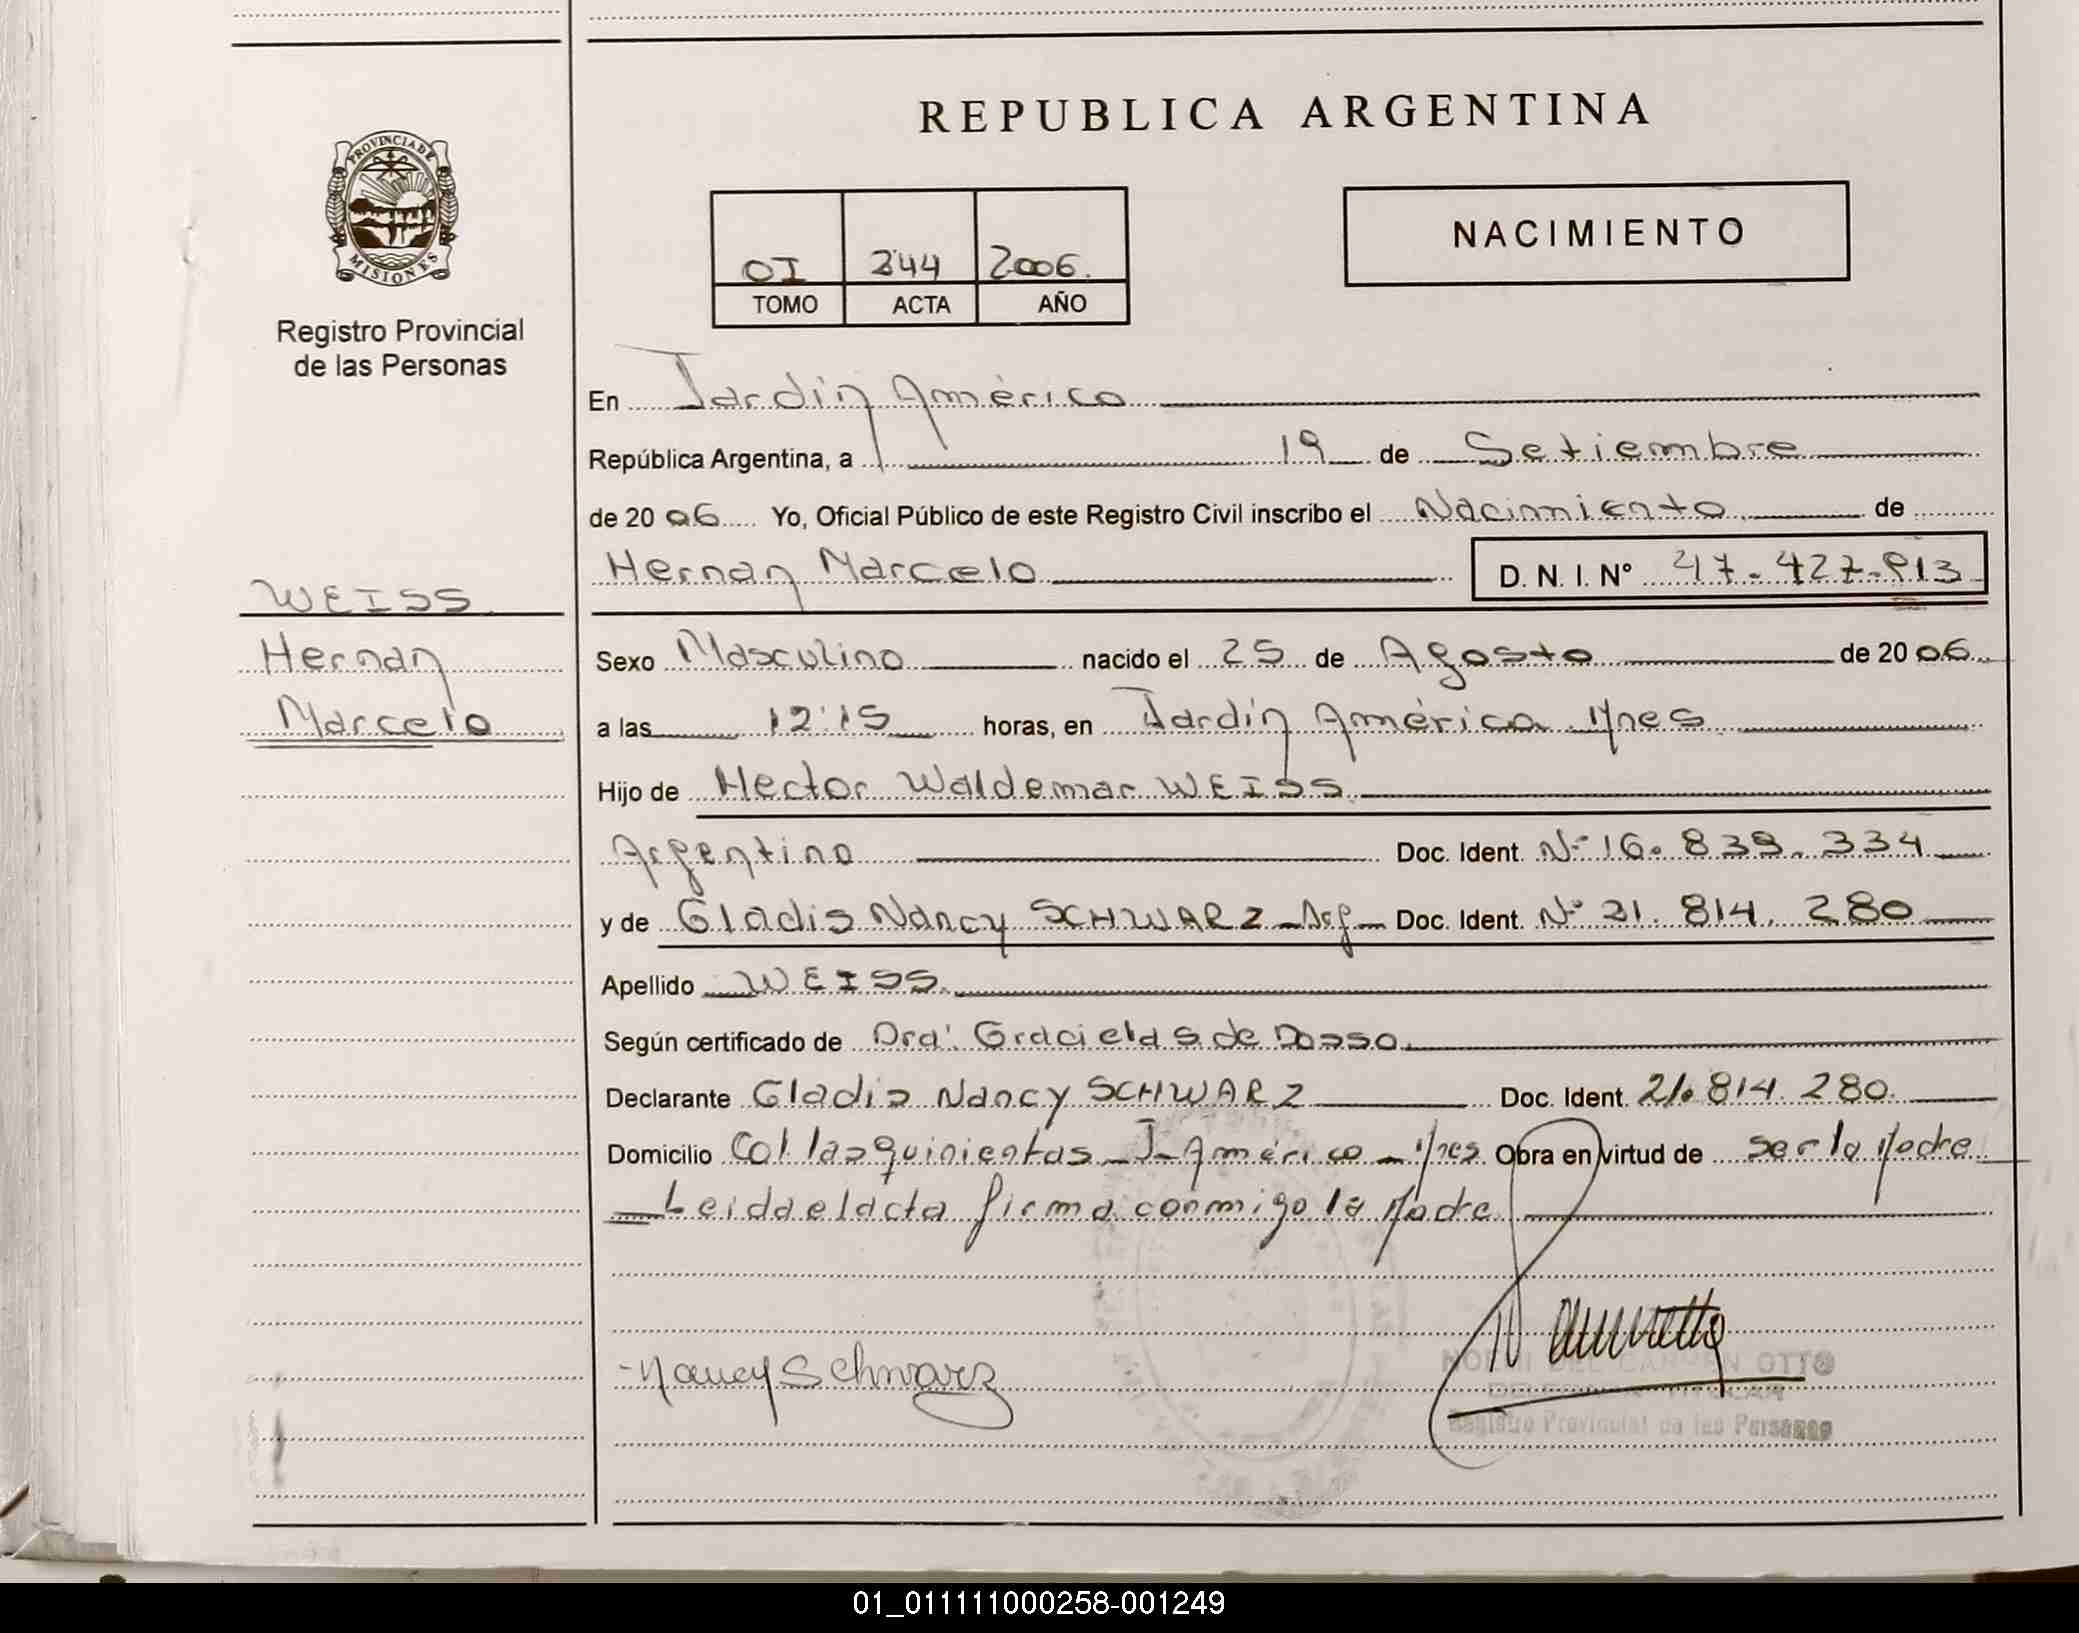 REPUBLICA ARGENTINA
PROVINCIA DE
MISIONES
Registro Provincial
de las Personas
NACIMIENTO
OI 344 2006.
TOMO ACTA AÑO
En Jardín América
República Argentina, a 19 de Setiembre
de 20 06 Yo, Oficial Público de este Registro Civil inscribo el Nacimiento de
Hernan Marcelo D. N. I. N° 47.427.913
WEISS
Hernan
Marcelo
Sexo Masculino nacido el 25 de Agosto de 20 06
a las 12:15 horas, en Jardín América Mnes
Hijo de Hector Waldemar WEISS
Argentino Doc. Ident. N° 16.839.334
y de Gladis Nancy SCHWARZ - Arg - Doc. Ident. N° 21.814.280
Apellido WEISS.
Según certificado de Dra. Graciela S de Dosso
Declarante Gladis Nancy SCHWARZ Doc. Ident. 21.814.280
Domicilio Col. las quinientas - J - América - Mnes Obra en virtud de ser la Madre
Leida el acta firma conmigo la Madre
Nancy Schwarz
NOEMI DEL CARMEN OTTO
DELEGADA TITULAR
Registro Provincial de las Personas
01_011111000258-001249